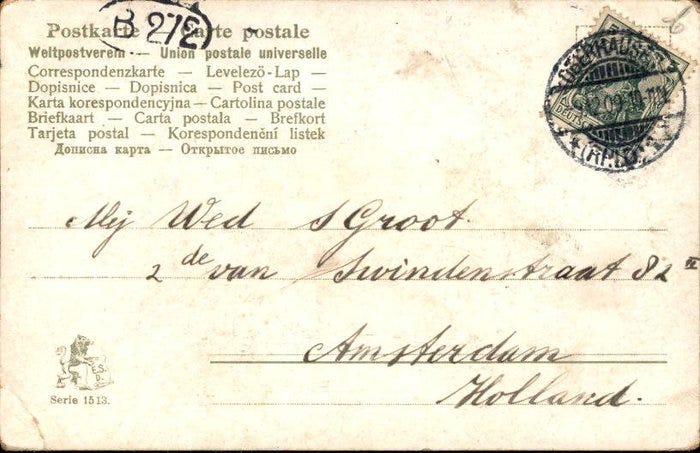 Postkarte — Carte postale
B 272
Weltpostverein — Union postale universelle
Correspondenzkarte — Levelező-Lap —
Dopisnice — Dopisnica — Post card —
Karta korespondencyjna — Cartolina postale
Briefkaart — Carta postala — Brefkort
Tarjeta postal — Korespondenční listek
Дописна карта — Открытое письмо
OBERHAUSEN
12.09.10
(RHLD.)
DEUTSCHES
Mej Wed S Groot
2 de van Swindenstraat 82 II
Amsterdam
Holland.
Serie 1513.